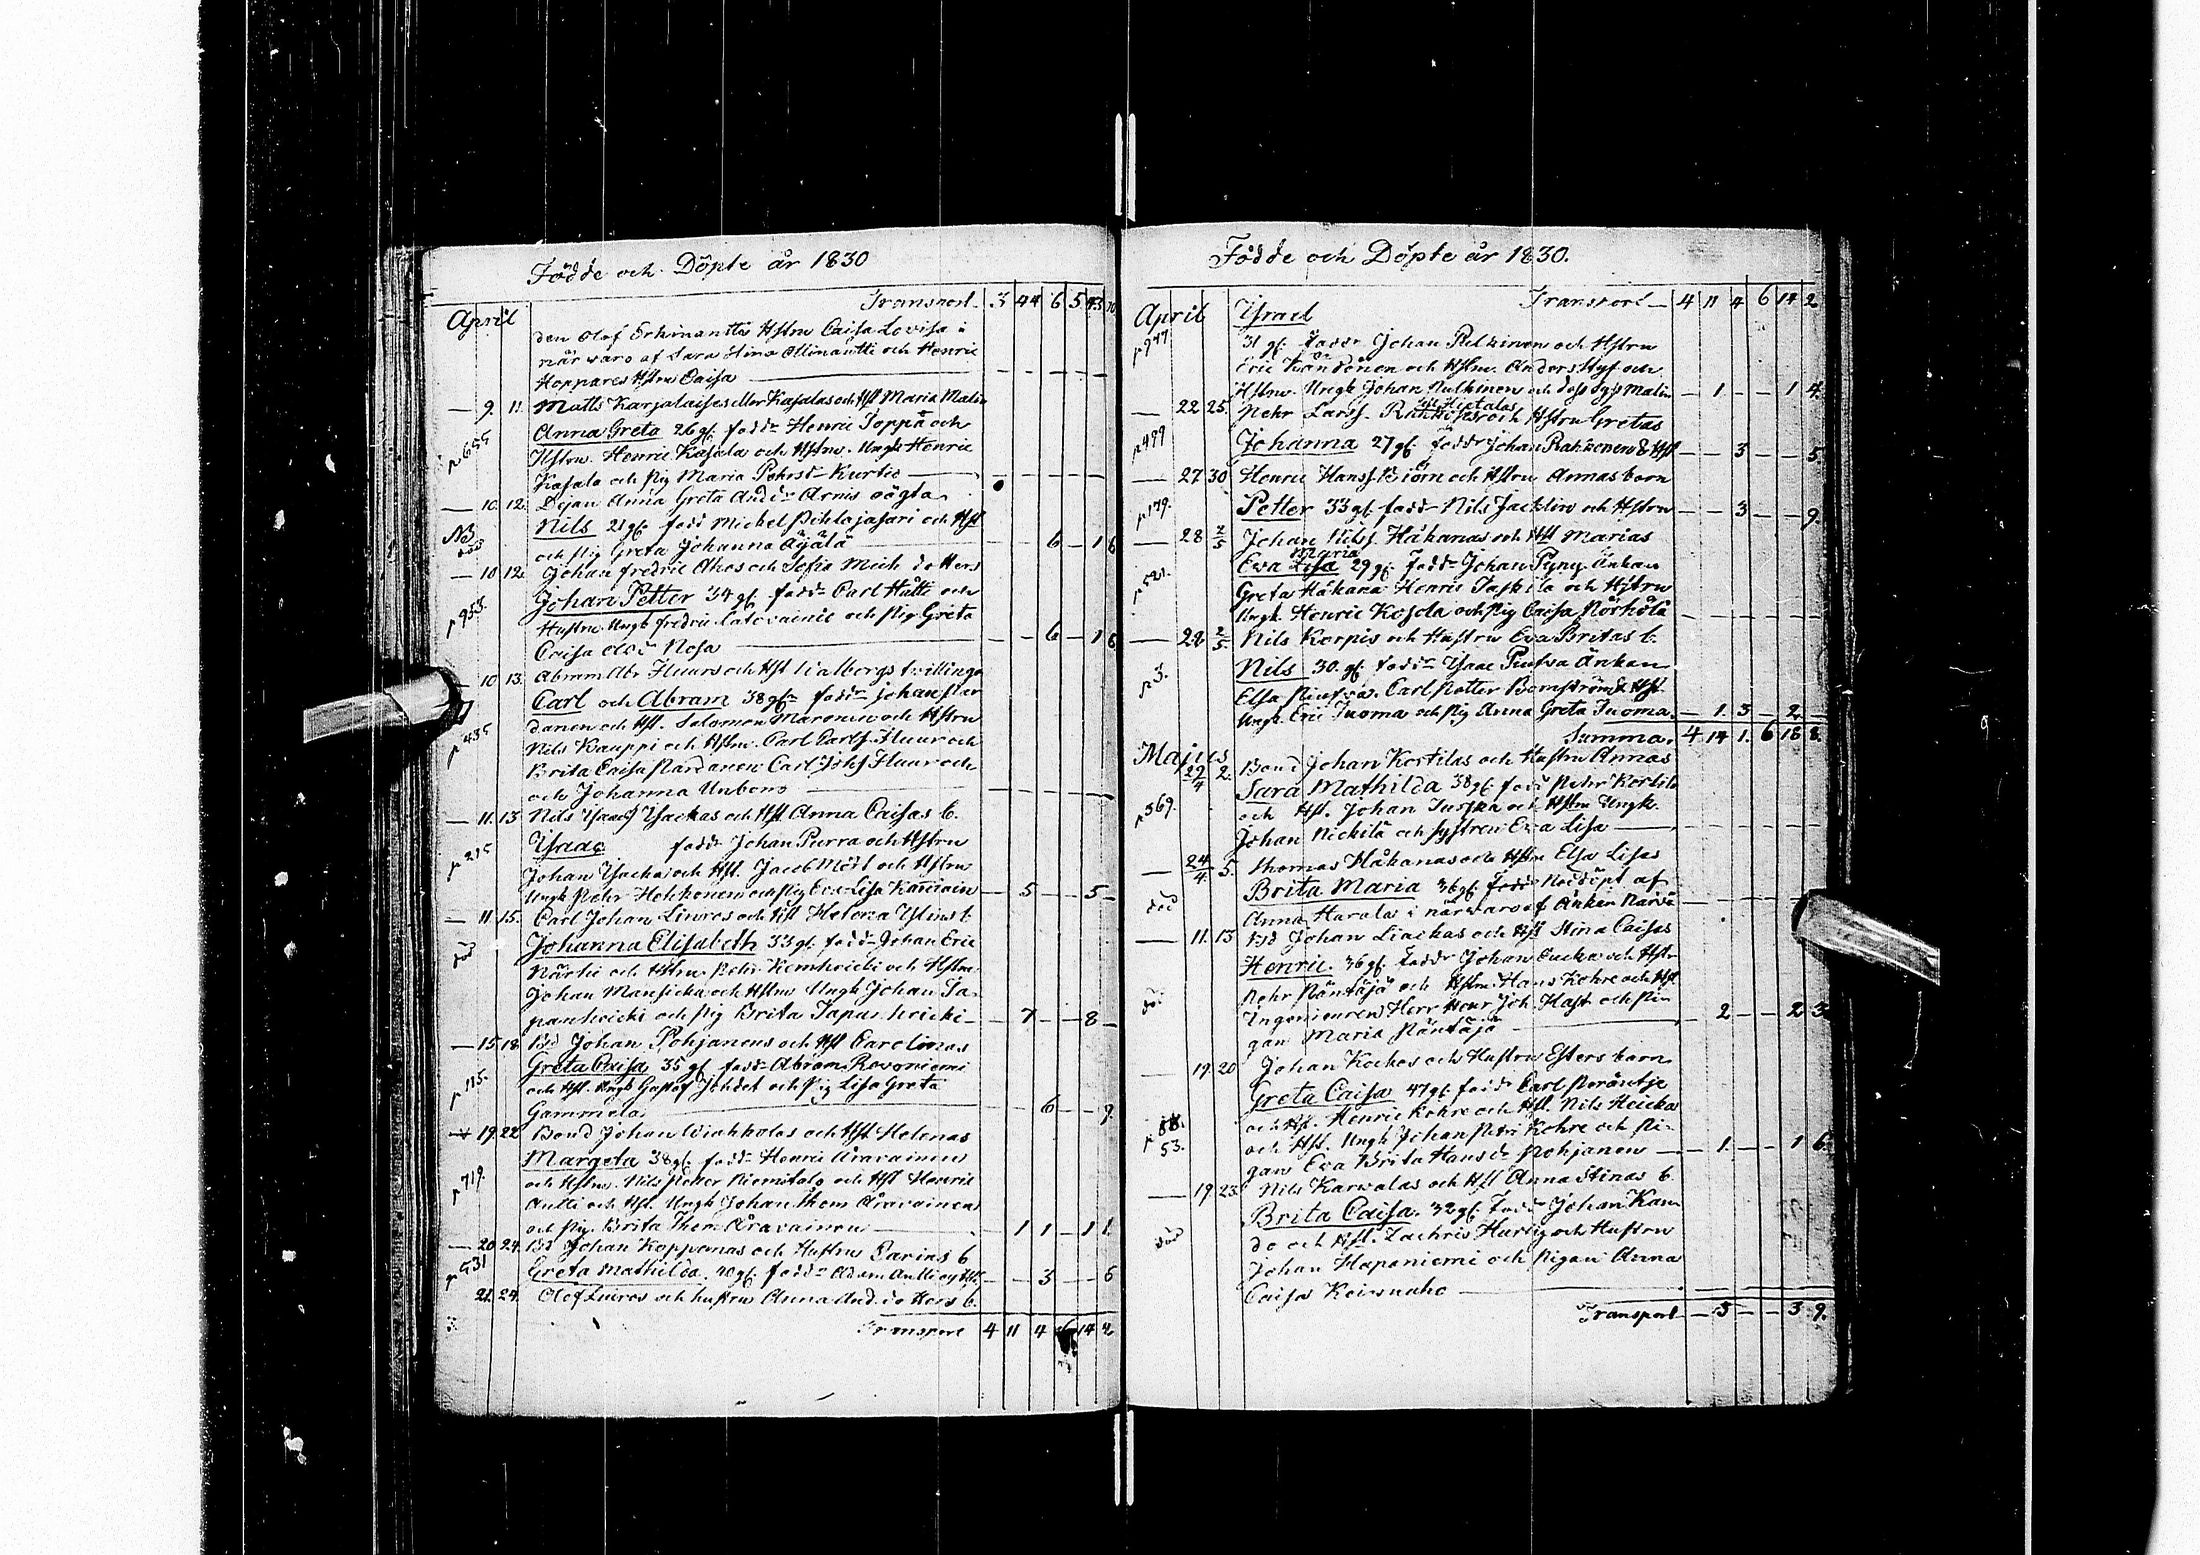 Födde och Döpte år 1830
Transport 3 44 6 5 43 10
April
den Olof Erkinanttis Hstru Caisa Lovisa i
när varo af Sara Stina Ollinantti och Henric
Hoppares Hstru Caisa
9. 11. Matts Karjalaises eller Kasalas och Hst Maria Malin
p 655 Anna Greta 26 gl. faddr Henric Toppa och
Hstru. Henric Kasala och Hstru. Ungk Henric
Kasala och Pig Maria Pehrsd Kurtio
10. 12. Dejan Anna Greta Andr Arnis oägta
N3 död Nils 21 gl. fadd Mickel Pihlajasari och Hst
och Pig Greta Johanna Äijälä 6 1 6
10 12. Johan fredric Ahos och Sofia Mich dotters
p 953. Johan Petter 34 gl. faddr Carl Hütti och
Hustru Ungk fredric Latovainio och Pig Greta
Caisa Nosa 6 1 6
10 13. Abram Abr Huurs och Hst Walborgs tvillingar
Carl och Abram 38 gl. faddr Johan
p 435 danen och Hst. Salomon Maronen och Hstru
Nils Kauppi och Hstru. Carl Carls. Huur och
Brita Caisa Pardanen Carl Johs Huur och
och Johanna Unbom
11. 13 Nils Isacss Isackas och Hst Anna Caisas b.
p 215 Isaac faddr Johan Purra och Hstru
Johan Isacka och Hst. Jacob Mört och Hstru
Ungk Pehr Heikonen och Pig Eva Lisa 5 5
11. 15. Carl Johan Linros och Hst Helena Ylins b.
död Johanna Elisabeth 33 gl. fadd Johan Eric
Närhi och Hstru. Pehr Kemheicki och Hstru
Johan Mansicka och Hstru Ungk Johan Ta-
panheicki och Pig Brita Tapanheicki 7 8
15 18. Bd Johan Pohjanens och Hst Carolinas
p 115. Greta Caisa 35 gl fadd Abram Rovaniemi
och Hst. Ungk Gustaf och Pig Lisa Greta
Gammela 6 9
19. 22 Bond Johan Wiahkolas och Hst Helenas
Margeta 38 gl. fadd Henric Åravainen
p 719. och Hstru. Nils Petter Niemitalo och Hst Henric
Antti och Hst. Ungk Johan Thom Åravainen
och Pig. Brita Thom Åravainen 1 1 1 1.
20. 24. Bd Johan Kopponas och Hustru Carins b
p 531 Greta Mathilda. 40 gl. fadd Adam Antti och Hst 3 6
21. 24. Olof Luiros och hustru Anna And. dotters b.
Transport 4 11 4 6 14 2
Födde och Döpte år 1830.
Transport 4 11 4 6 14 2
April Israel
p 947 31 gl. faddr Johan Pulkinen och Hstru
Eric Köndönen och Hstru. Anders Styf och
Hstru. Ungk Johan Pulkinen och dess Syst Malin 1 1 4
22 25. Pehr Larss. och Hstru Gretas
p 499 Johanna 27 gl. faddr Johan Rahkonen & Hst 3 5.
27 30 Henric Hanss. Björn och Hstru Annas barn
p 179. Petter 33 gl. faddr Nils Jacklin och Hstru 3 9.
28 2/5 Johan Nilss. Håkanas och Hst Marias
Maria
p 521. Eva Lisa 29 gl. faddr Johan Pyny Änkan
Greta Håkana Henric Taskila och Hstru
Ungk. Henric Kosola och Pig Caisa Norkota
28 2/5. Nils Korpis och Hustru Eva Britas b.
p 3. Nils 30 gl. faddr Isaac Piufva Änkan
Elsa Piufva. Carl Petter Bomström & Hst
Ungk. Eric Tuoma och Pig Anna Greta Tuoma. 1. 3 2
Summa. 4 14 1. 6 18 8.
Majus
29/4 2. Bond Johan Kortilas och Hustru Annas
Sara Mathilda 38 gl. fadd Pehr Kortila
p 569. och Hst. Johan Juska och Hstru Ungk.
Johan Nickilä och Systren Eva Lisa
24/4. 5. Thomas Håkanas och Hstru Elsa Lisas
död Brita Maria 36 gl. fadd Nöddöpt af
Anna Harala i närwaro af Änkan
11. 13 Bd Johan Liackas och Hst Stina Caisas
Henric. 36 gl. faddr Johan Cucka och Hstr
död Pehr Päntäjä och Hstru Hans Kohre och Hst
Ingenieuren Herr Joh. Hast och Pi- 2 2 3
gan Maria Päntäjä
19. 20 Johan Kockos och Hustru Esters barn
Greta Caisa 47 gl. fadd Carl Poräntje
p 88. och Hst. Henric Kohre och Hst. Nils Heicka
53. och Hst. Ungk Johan Petri Kohre och Pi- 1. 1 6.
gan Eva Brita Hansdr Pohjanen
19. 23. Nils Karwalas och Hst Anna Stinas b
Brita Caisa. 32 gl. fadd Johan Kan
död do och Hst. Zachris Hurtig och Hustru
Johan Haponiemi och Pigan Anna
Caisa Keiunaho
Transport 3 3 9.